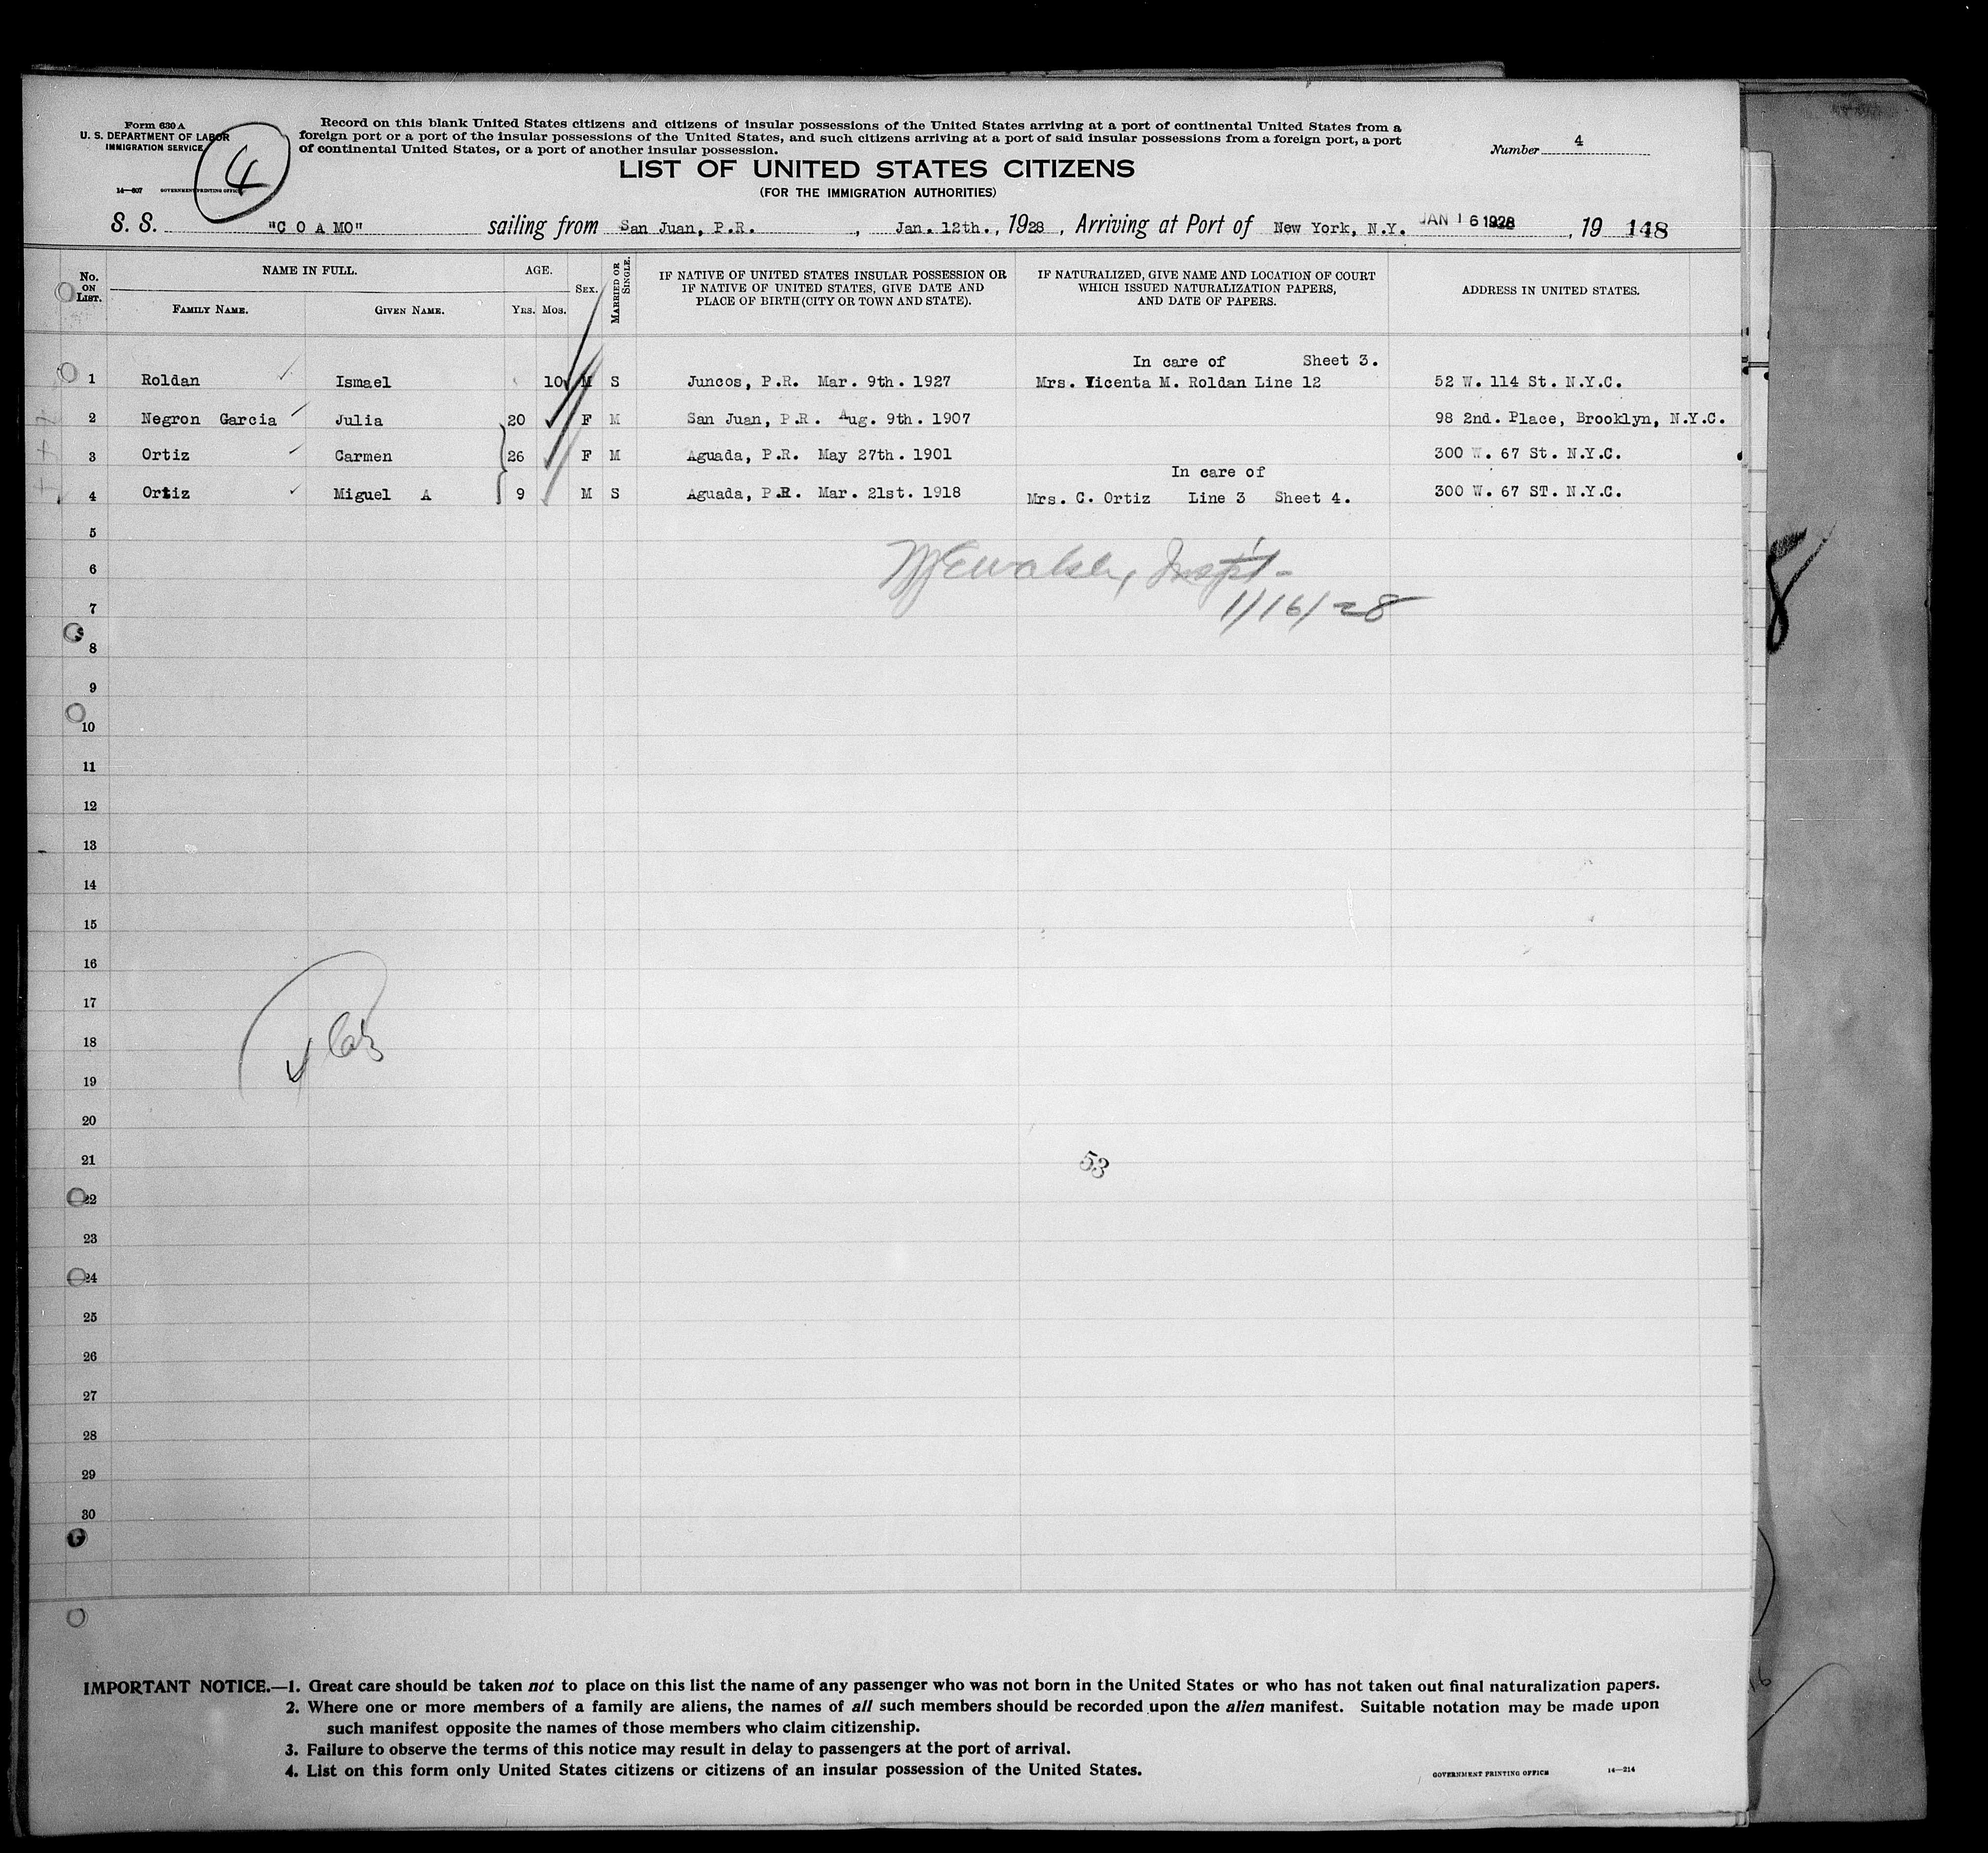 Form 630 A
U. S. DEPARTMENT OF LABOR
IMMIGRATION SERVICE
4
14—607 GOVERNMENT PRINTING OFFICE
Record on this blank United States citizens and citizens of insular possessions of the United States arriving at a port of continental United States from a
foreign port or a port of the insular possessions of the United States, and such citizens arriving at a port of said insular possessions from a foreign port, a port
of continental United States, or a port of another insular possession.
Number 4
LIST OF UNITED STATES CITIZENS
(FOR THE IMMIGRATION AUTHORITIES)
S. S. "C O A MO" sailing from San Juan, P.R. , Jan. 12th. , 1928 , Arriving at Port of New York, N.Y. JAN 16 1928 , 19 148
No. ON LIST. NAME IN FULL. AGE. SEX. MARRIED OR SINGLE. IF NATIVE OF UNITED STATES INSULAR POSSESSION OR IF NATIVE OF UNITED STATES, GIVE DATE AND PLACE OF BIRTH (CITY OR TOWN AND STATE). IF NATURALIZED, GIVE NAME AND LOCATION OF COURT WHICH ISSUED NATURALIZATION PAPERS, AND DATE OF PAPERS. ADDRESS IN UNITED STATES.
FAMILY NAME. GIVEN NAME. YRS. MOS.
In care of Sheet 3.
1 Roldan Ismael 10 M S Juncos, P.R. Mar. 9th. 1927 Mrs. Vicenta M. Roldan Line 12 52 W. 114 St. N.Y.C.
2 Negron Garcia Julia 20 F M San Juan, P.R. Aug. 9th. 1907 98 2nd. Place, Brooklyn, N.Y.C.
3 Ortiz Carmen 26 F M Aguada, P.R. May 27th. 1901 300 W. 67 St. N.Y.C.
In care of
4 Ortiz Miguel A 9 M S Aguada, P.R. Mar. 21st. 1918 Mrs. C. Ortiz Line 3 Sheet 4. 300 W. 67 ST. N.Y.C.
5
6
1/16/28
7
8
8
9
10
11
12
13
14
15
16
17
18
19
20
21
53
22
23
24
25
26
27
28
29
30
IMPORTANT NOTICE.—1. Great care should be taken not to place on this list the name of any passenger who was not born in the United States or who has not taken out final naturalization papers.
2. Where one or more members of a family are aliens, the names of all such members should be recorded upon the alien manifest. Suitable notation may be made upon
such manifest opposite the names of those members who claim citizenship.
3. Failure to observe the terms of this notice may result in delay to passengers at the port of arrival.
4. List on this form only United States citizens or citizens of an insular possession of the United States.
GOVERNMENT PRINTING OFFICE 14—214